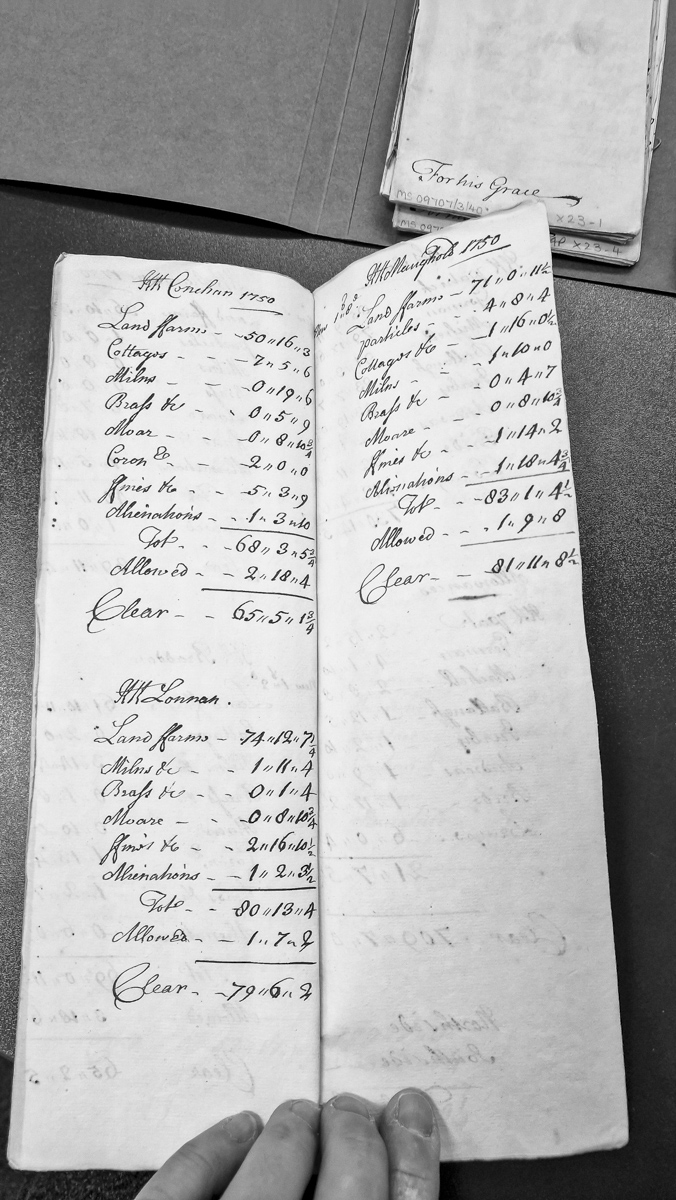 For his Grace
MS 09707/3/40
X23-1
MS 097
AP X23-4
KK Conchan 1750
Land ffarms - 50 " 16 " 3
Cottages - - 7 " 5 " 6
Milns - - 0 " 19 " 6
Brass &c - 0 " 5 " 9
Moar - - 0 " 8 " 10 3/4
Coron &c - 2 " 0 " 0
ffines &c - 5 " 3 " 9
Alienations - 1 " 3 " 10
Tot - - 68 " 3 " 5 3/4
Allowed - - 2 " 18 " 4
Clear - - 65 " 5 " 1 3/4
KK Lonnan.
Land ffarms - 74 " 12 " 7 1/4
Milns &c - - 1 " 11 " 4
Brass &c - - 0 " 1 " 4
Moare - - 0 " 8 " 10 3/4
ffines &c - 2 " 16 " 10 1/2
Alienations - 1 " 2 " 3 1/2
Tot - - 80 " 13 " 4
Allowed - - 1 " 7 " 2
Clear - - 79 " 6 " 2
KK Maughold 1750
Land ffarms - 71 " 0 " 11 1/2
particles - - 4 " 8 " 4
Cottages &c - 1 " 16 " 0 1/2
Milns - - 1 " 10 " 0
Brass &c - 0 " 4 " 7
Moare - - 0 " 8 " 10 3/4
ffines &c - 1 " 14 " 2
Alienations - 1 " 18 " 4 3/4
Tot - - 83 " 1 " 4 1/2
Allowed - - 1 " 9 " 8
Clear - - 81 " 11 " 8 1/2